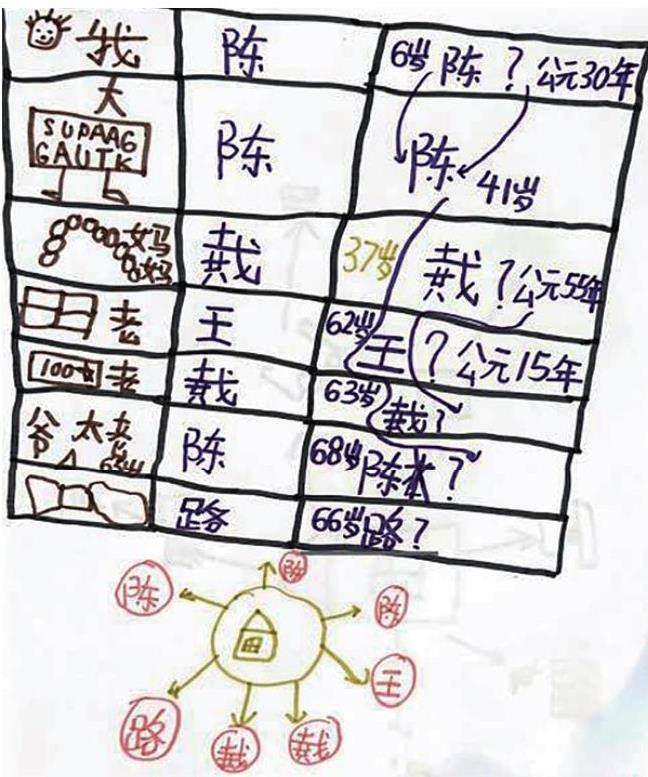 我 陈 6岁 陈 ? 公元30年
大
SUPAAG
GAUTK
陈 陈 41岁
妈妈 戴 37岁 戴 ? 公元55年
老 王 62岁 王 ? 公元15年
100 老 戴 63岁 戴 ?
爷 太 老 陈 68岁 陈 ?
路 66岁 路 ?
陈
陈
陈
王
路
戴
戴